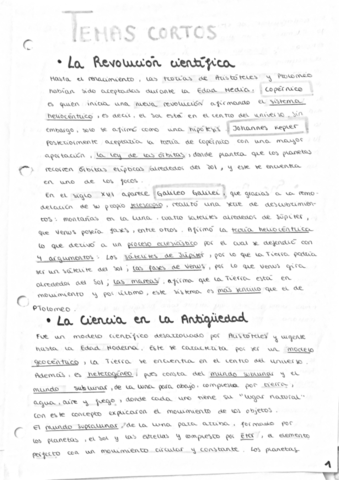 TEMAS CORTOS
• La Revolución científica
Hasta el renacimiento, las teorías de Aristóteles y Ptolomeo
habían sido aceptadas durante la Edad Media. Copérnico
es quien inicia una nueva revolución afirmando el sistema
heliocéntrico, es decir, el Sol está en el centro del universo. Sin
embargo, solo se afirmó como una hipótesis. Johannes Kepler
posteriormente aceptaría la teoría de Copérnico con una mayor
aportación, la ley de las órbitas, donde plantea que los planetas
recorren órbitas elípticas alrededor del Sol, y este se encuentra
en uno de los focos.
En el siglo XVI aparece Galileo Galilei que gracias a la remo-
delación de su propio telescopio, realizó una serie de descubrimien-
tos: montañas en la Luna, cuatro satélites alrededor de Júpiter,
que Venus poseía fases, entre otros. Afirmó la teoría heliocéntrica
lo que derivó a un proceso eclesiástico por el cual se defendió con
4 argumentos. Los satélites de Júpiter, por lo que la Tierra podría
ser un satélite del Sol; las fases de Venus, por lo que Venus gira
alrededor del Sol; las mareas, afirma que la Tierra está en
movimiento y por último, este sistema es más sencillo que el de
Ptolomeo
• La Ciencia en la Antigüedad
Fue un modelo científico desarrollado por Aristóteles y vigente
hasta la Edad Moderna. Este se caracteriza por ser un modelo
geocéntrico, la Tierra se encuentra en el centro del universo.
Además, es heterogéneo, pues consta del mundo sublunar y el
mundo sublunar, de la luna para abajo, compuesta por tierra,
agua, aire y fuego, donde cada uno tiene su "lugar natural"
con este concepto explicaron el movimiento de los objetos.
El mundo supralunar, de la luna para arriba, formado por
los planetas, el Sol y las estrellas y compuesto por éter, el elemento
perfecto con un movimiento circular y constante. Los planetas
1